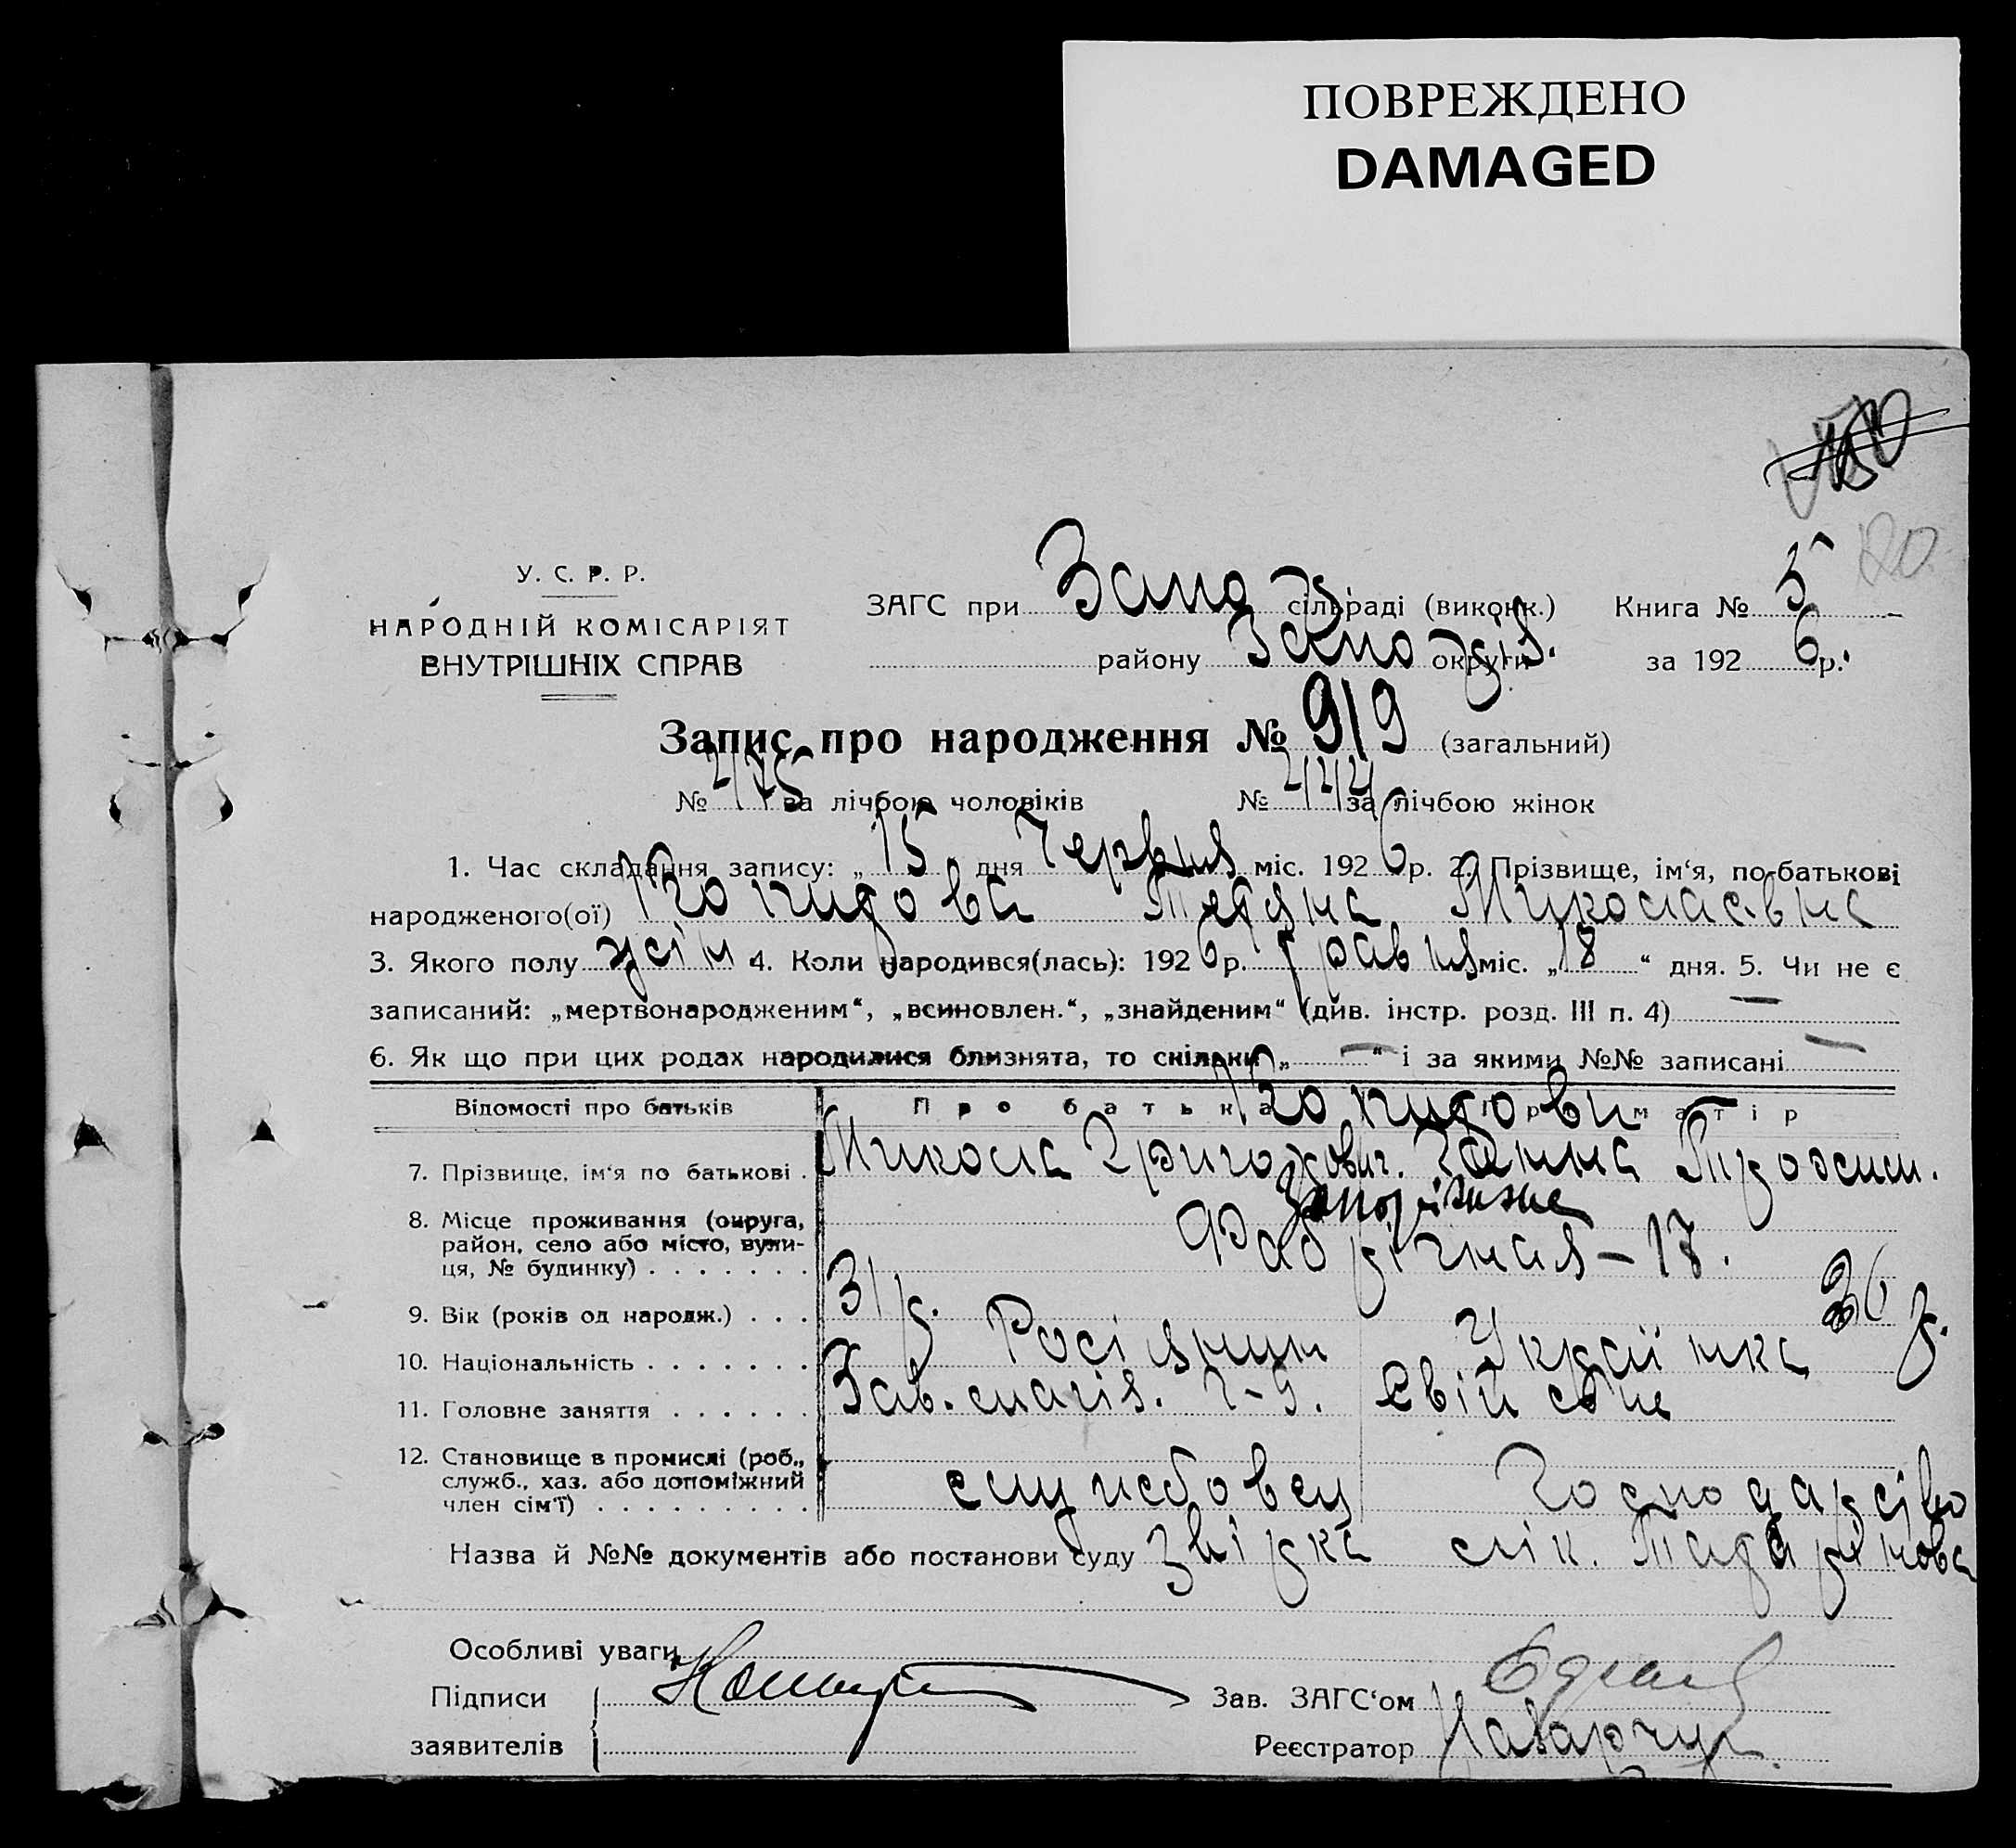 ПОВРЕЖДЕНО
DAMAGED
20
У. С. Р. Р.
НАРОДНІЙ КОМІСАРІЯТ
ВНУТРІШНІХ СПРАВ
ЗАГС при Запоріз. сільраді (виконк.) Книга № 5
району Запоріз. округи за 1926 р.
Запис про народження № 919 (загальний)
№ за лічбою чоловіків № за лічбою жінок
1. Час складання запису: „15 дня Червня міс. 1926 р. 2. Прізвище, ім‘я, по-батькові
народженого(ої) Тетяна Миколаєвна
3. Якого полу жін 4. Коли народився(лась): 1926 р. травня міс. „18“ дня. 5. Чи не є
записаний: „мертвонародженим“, „всиновлен.“, „знайденим“ (див. інстр. розд. III п. 4) —
6. Як що при цих родах народилися близнята, то скільки „—“ і за якими №№ записані —
Відомості про батьків Про батька Про матір
7. Прізвище, ім‘я по батькові . Микола Григорович. Ганна Трохим.
8. Місце проживання (округа, Запоріжже
район, село або місто, вули- Фабрічная – 17.
ця, № будинку) . . . . . . .
9. Вік (років од народж.) . . . 31 р. 26 р.
10. Національність . . . . . . . Росіянин Украіїнка
11. Головне заняття . . . . . . Зав.
12. Становище в промислі (роб.,
служб., хаз. або допоміжний
член сім‘ї) . . . . . . . . . . службовец Господарство
Назва й №№ документів або постанови суду
Особливі уваги
Підписи
заявителів
Зав. ЗАГС‘ом
Реєстратор Назарчук